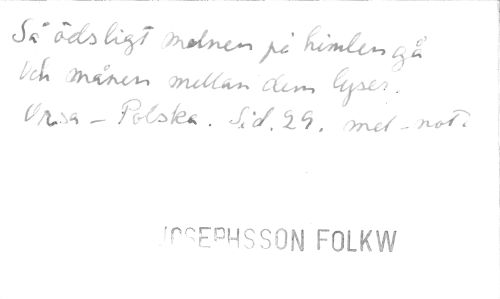 Så ödsligt molnen på himlen gå
Och månen mellan dem lyser.
Orsa - Polska. Sid. 29. mel-not.
JOSEPHSSON FOLKW